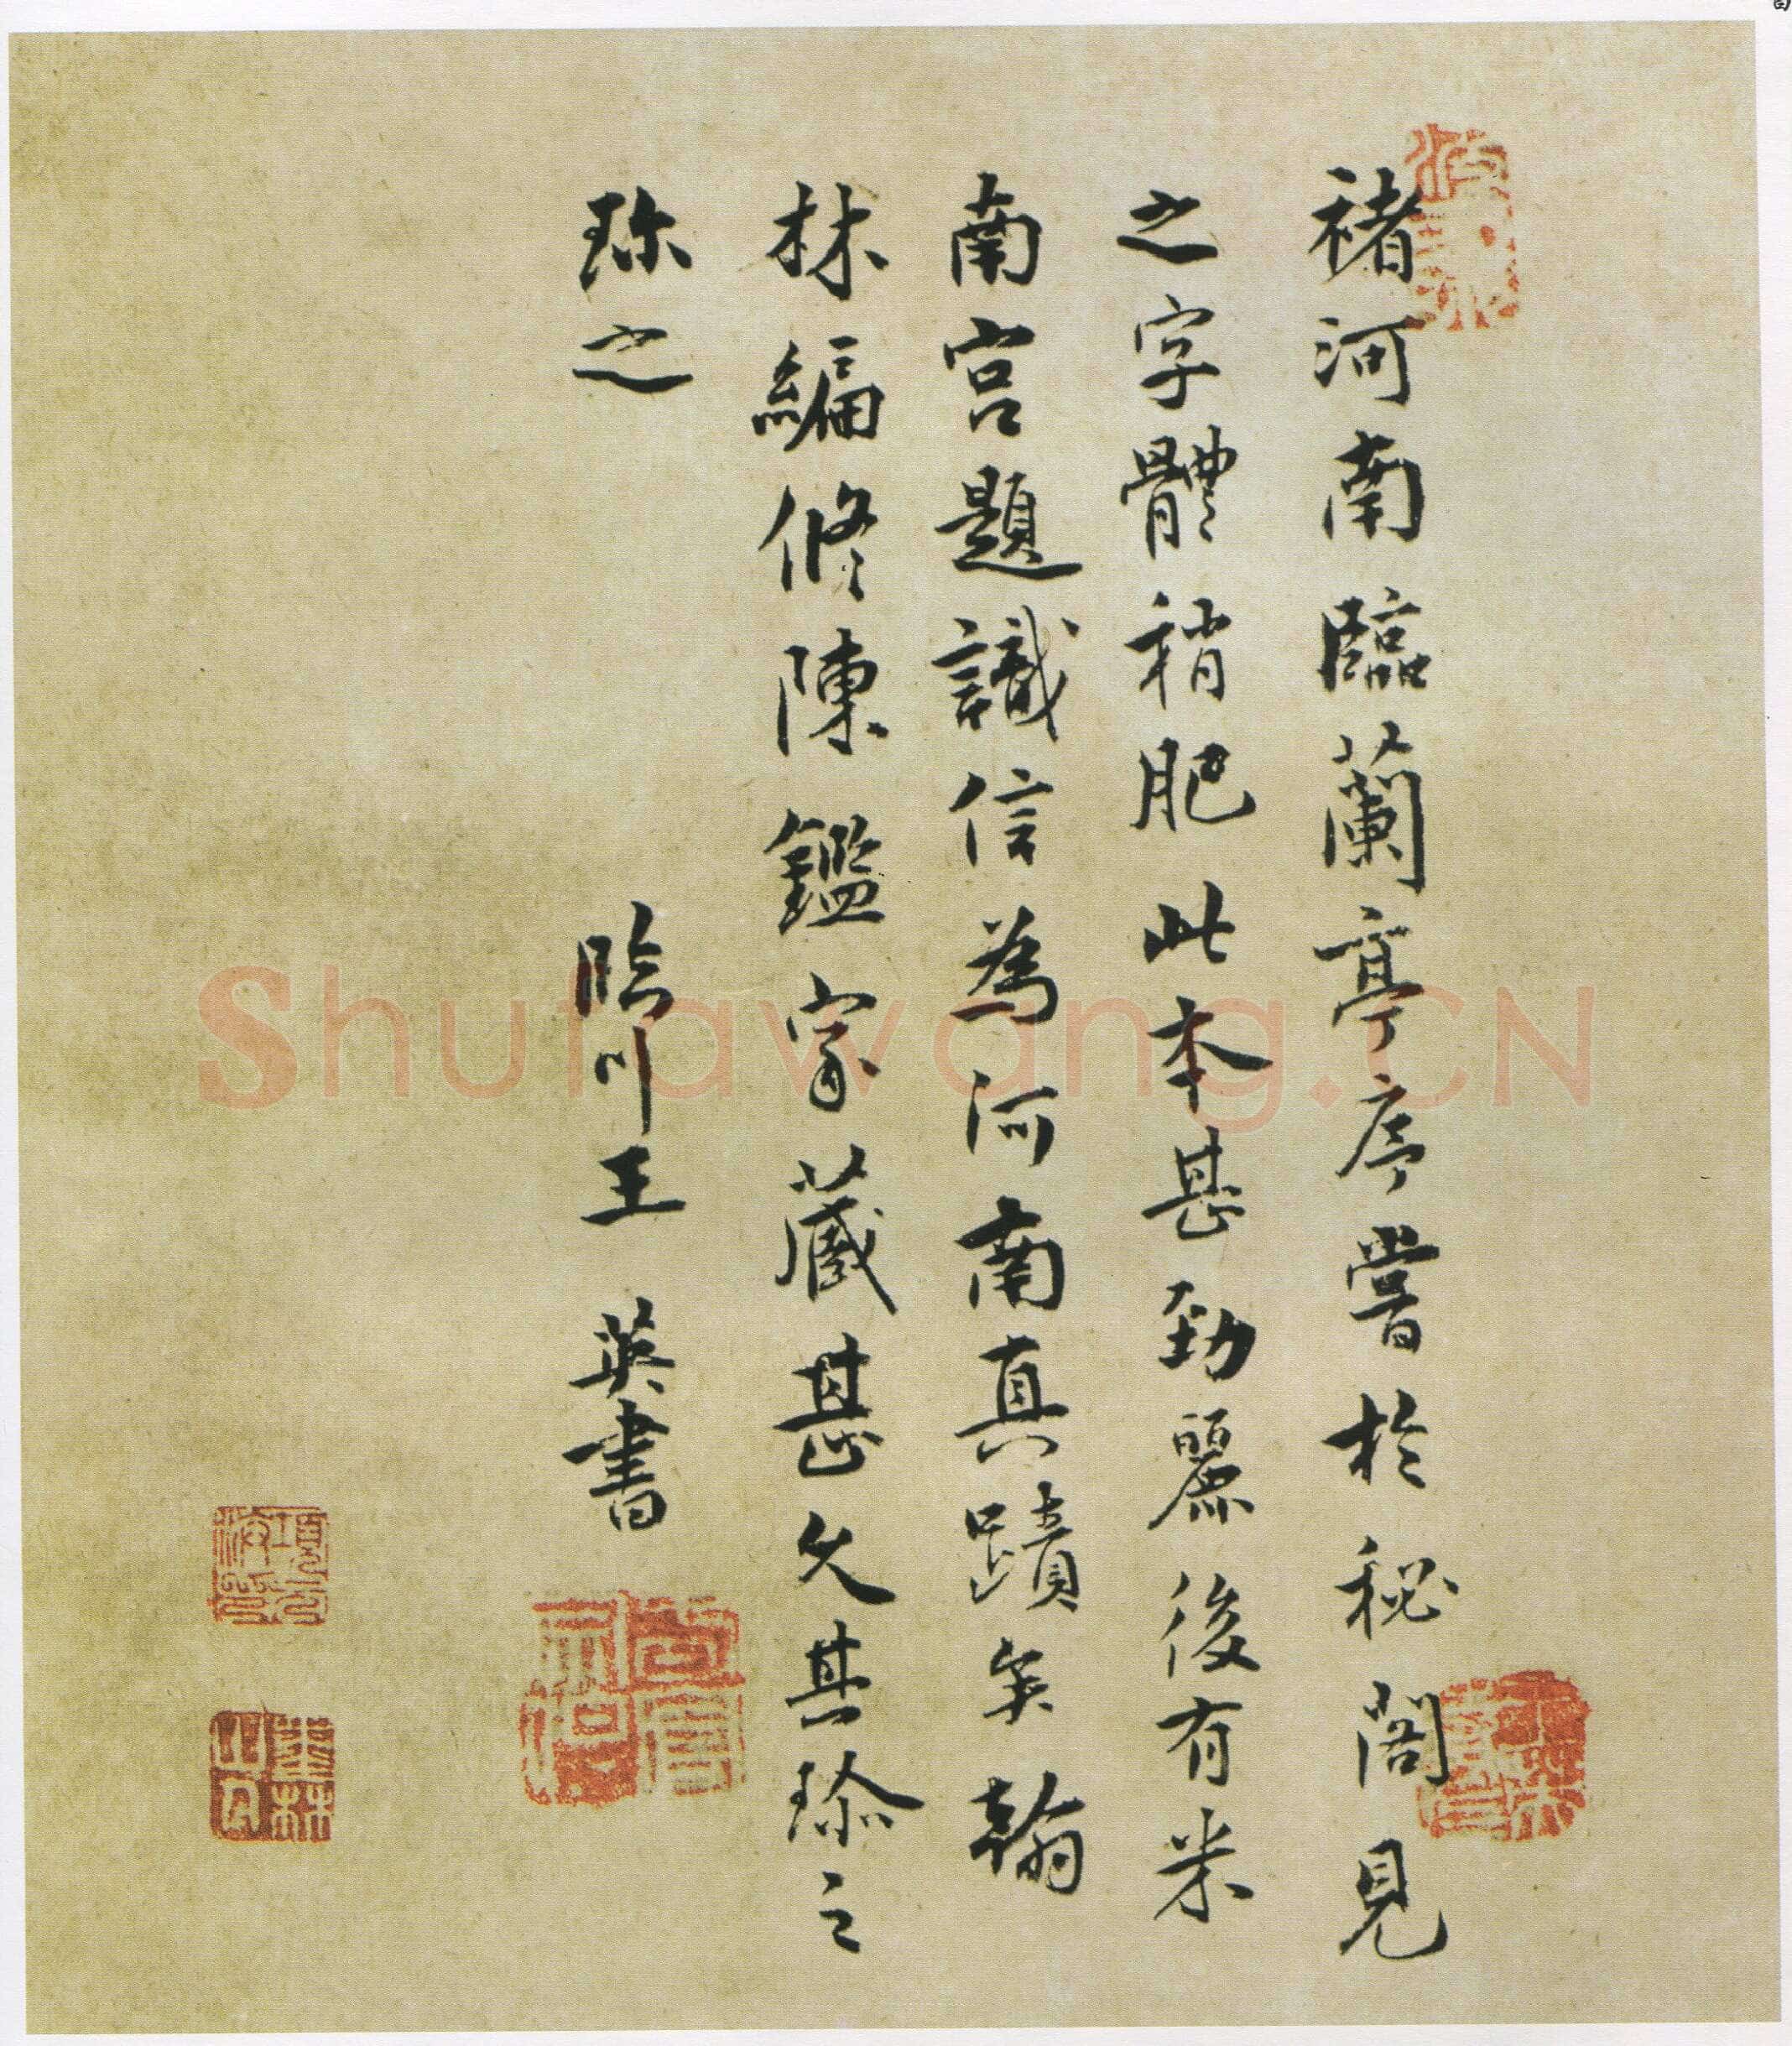 褚河南臨蘭亭序嘗於秘閣見
之字體稍肥此本甚勁麗後有米
南宮題識信為河南真蹟矣翰
林編修陳鑑家藏甚久其珎之
珎之 臨川王英書
項元汴印
墨林山人
Shufawang.CN